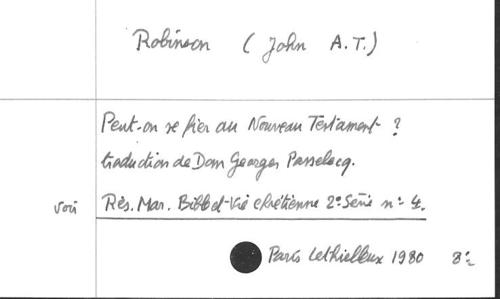 Robinson (John A.T.)
Peut-on se fier au Nouveau Testament ?
traduction de Dom Georges Passelecq.
voir Rés. Mar. Bibl de Vie chrétienne 2e Série n° 4.
Paris Lethielleux 1980 8°